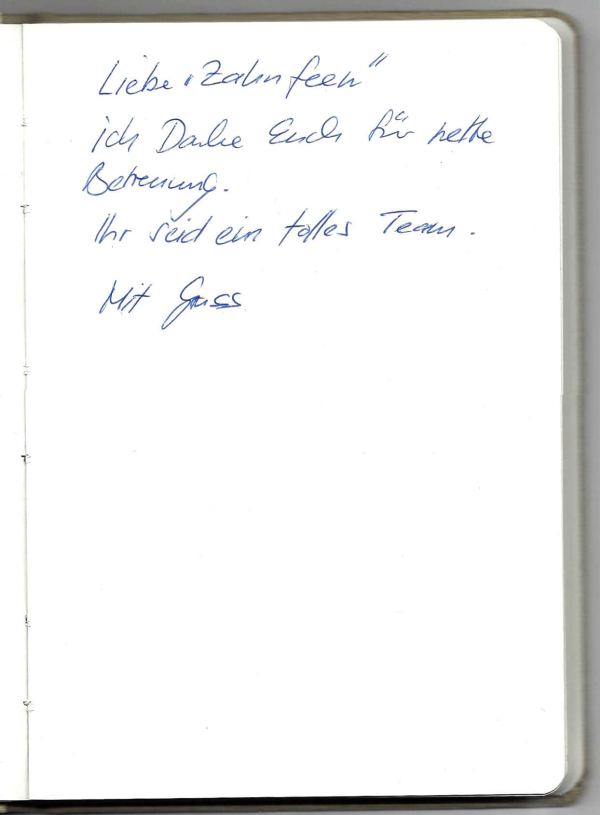 Liebe „Zahnfeen"
ich Danke Euch für nette
Betreuung.
Ihr seid ein tolles Team.
Mit Gruss